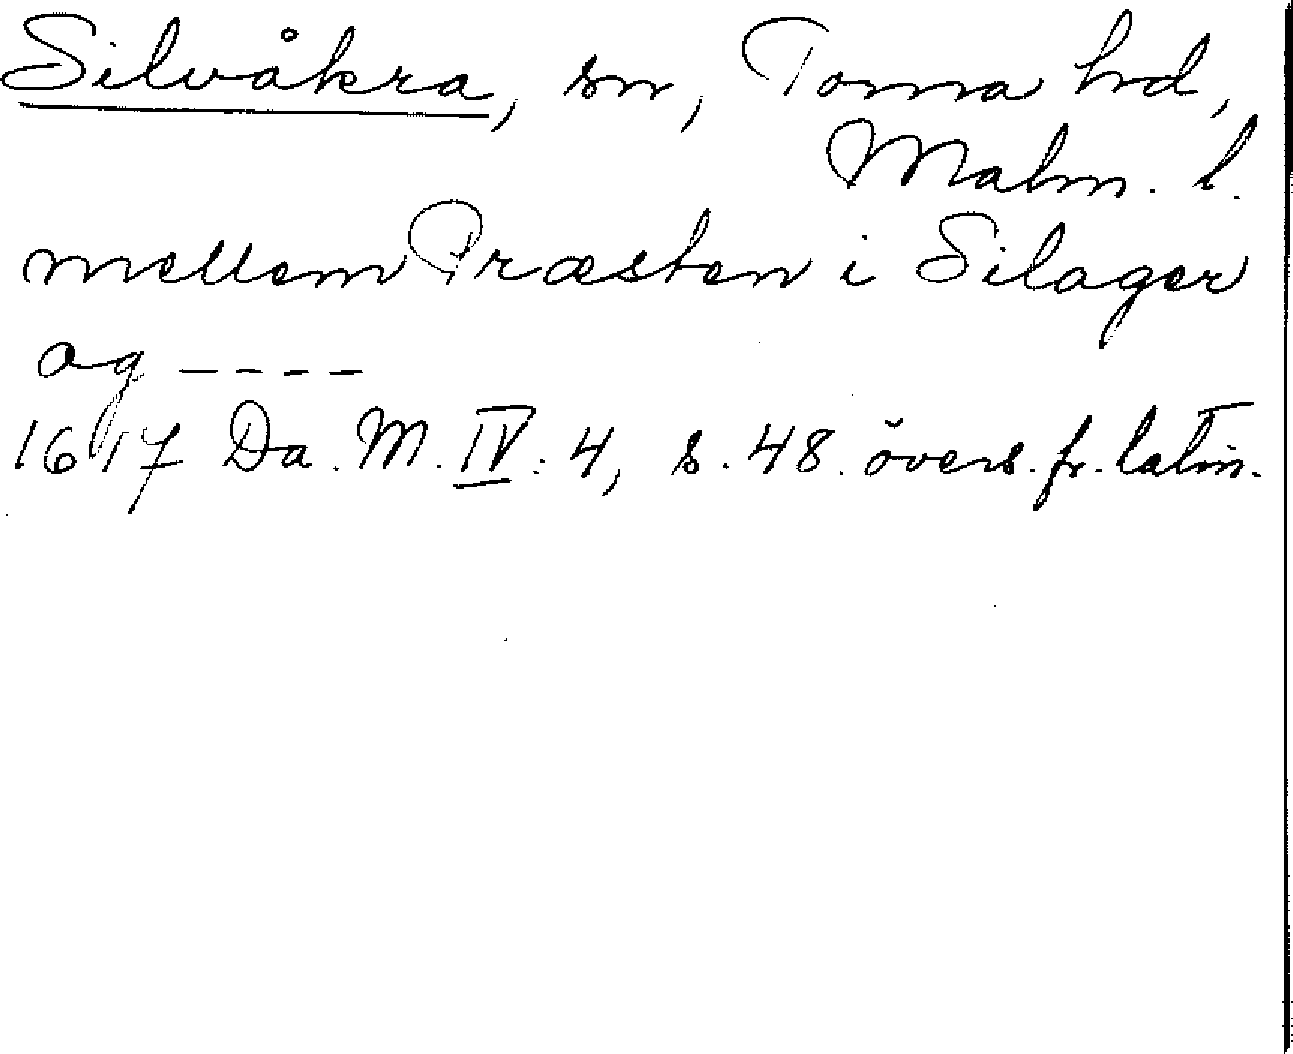 Silvåkra, sn, Torna hd,
Malm. l.
mellem Præsten i Silager
og ----
1617 Da. M. IV: 4, s. 48. övers. fr. latin.